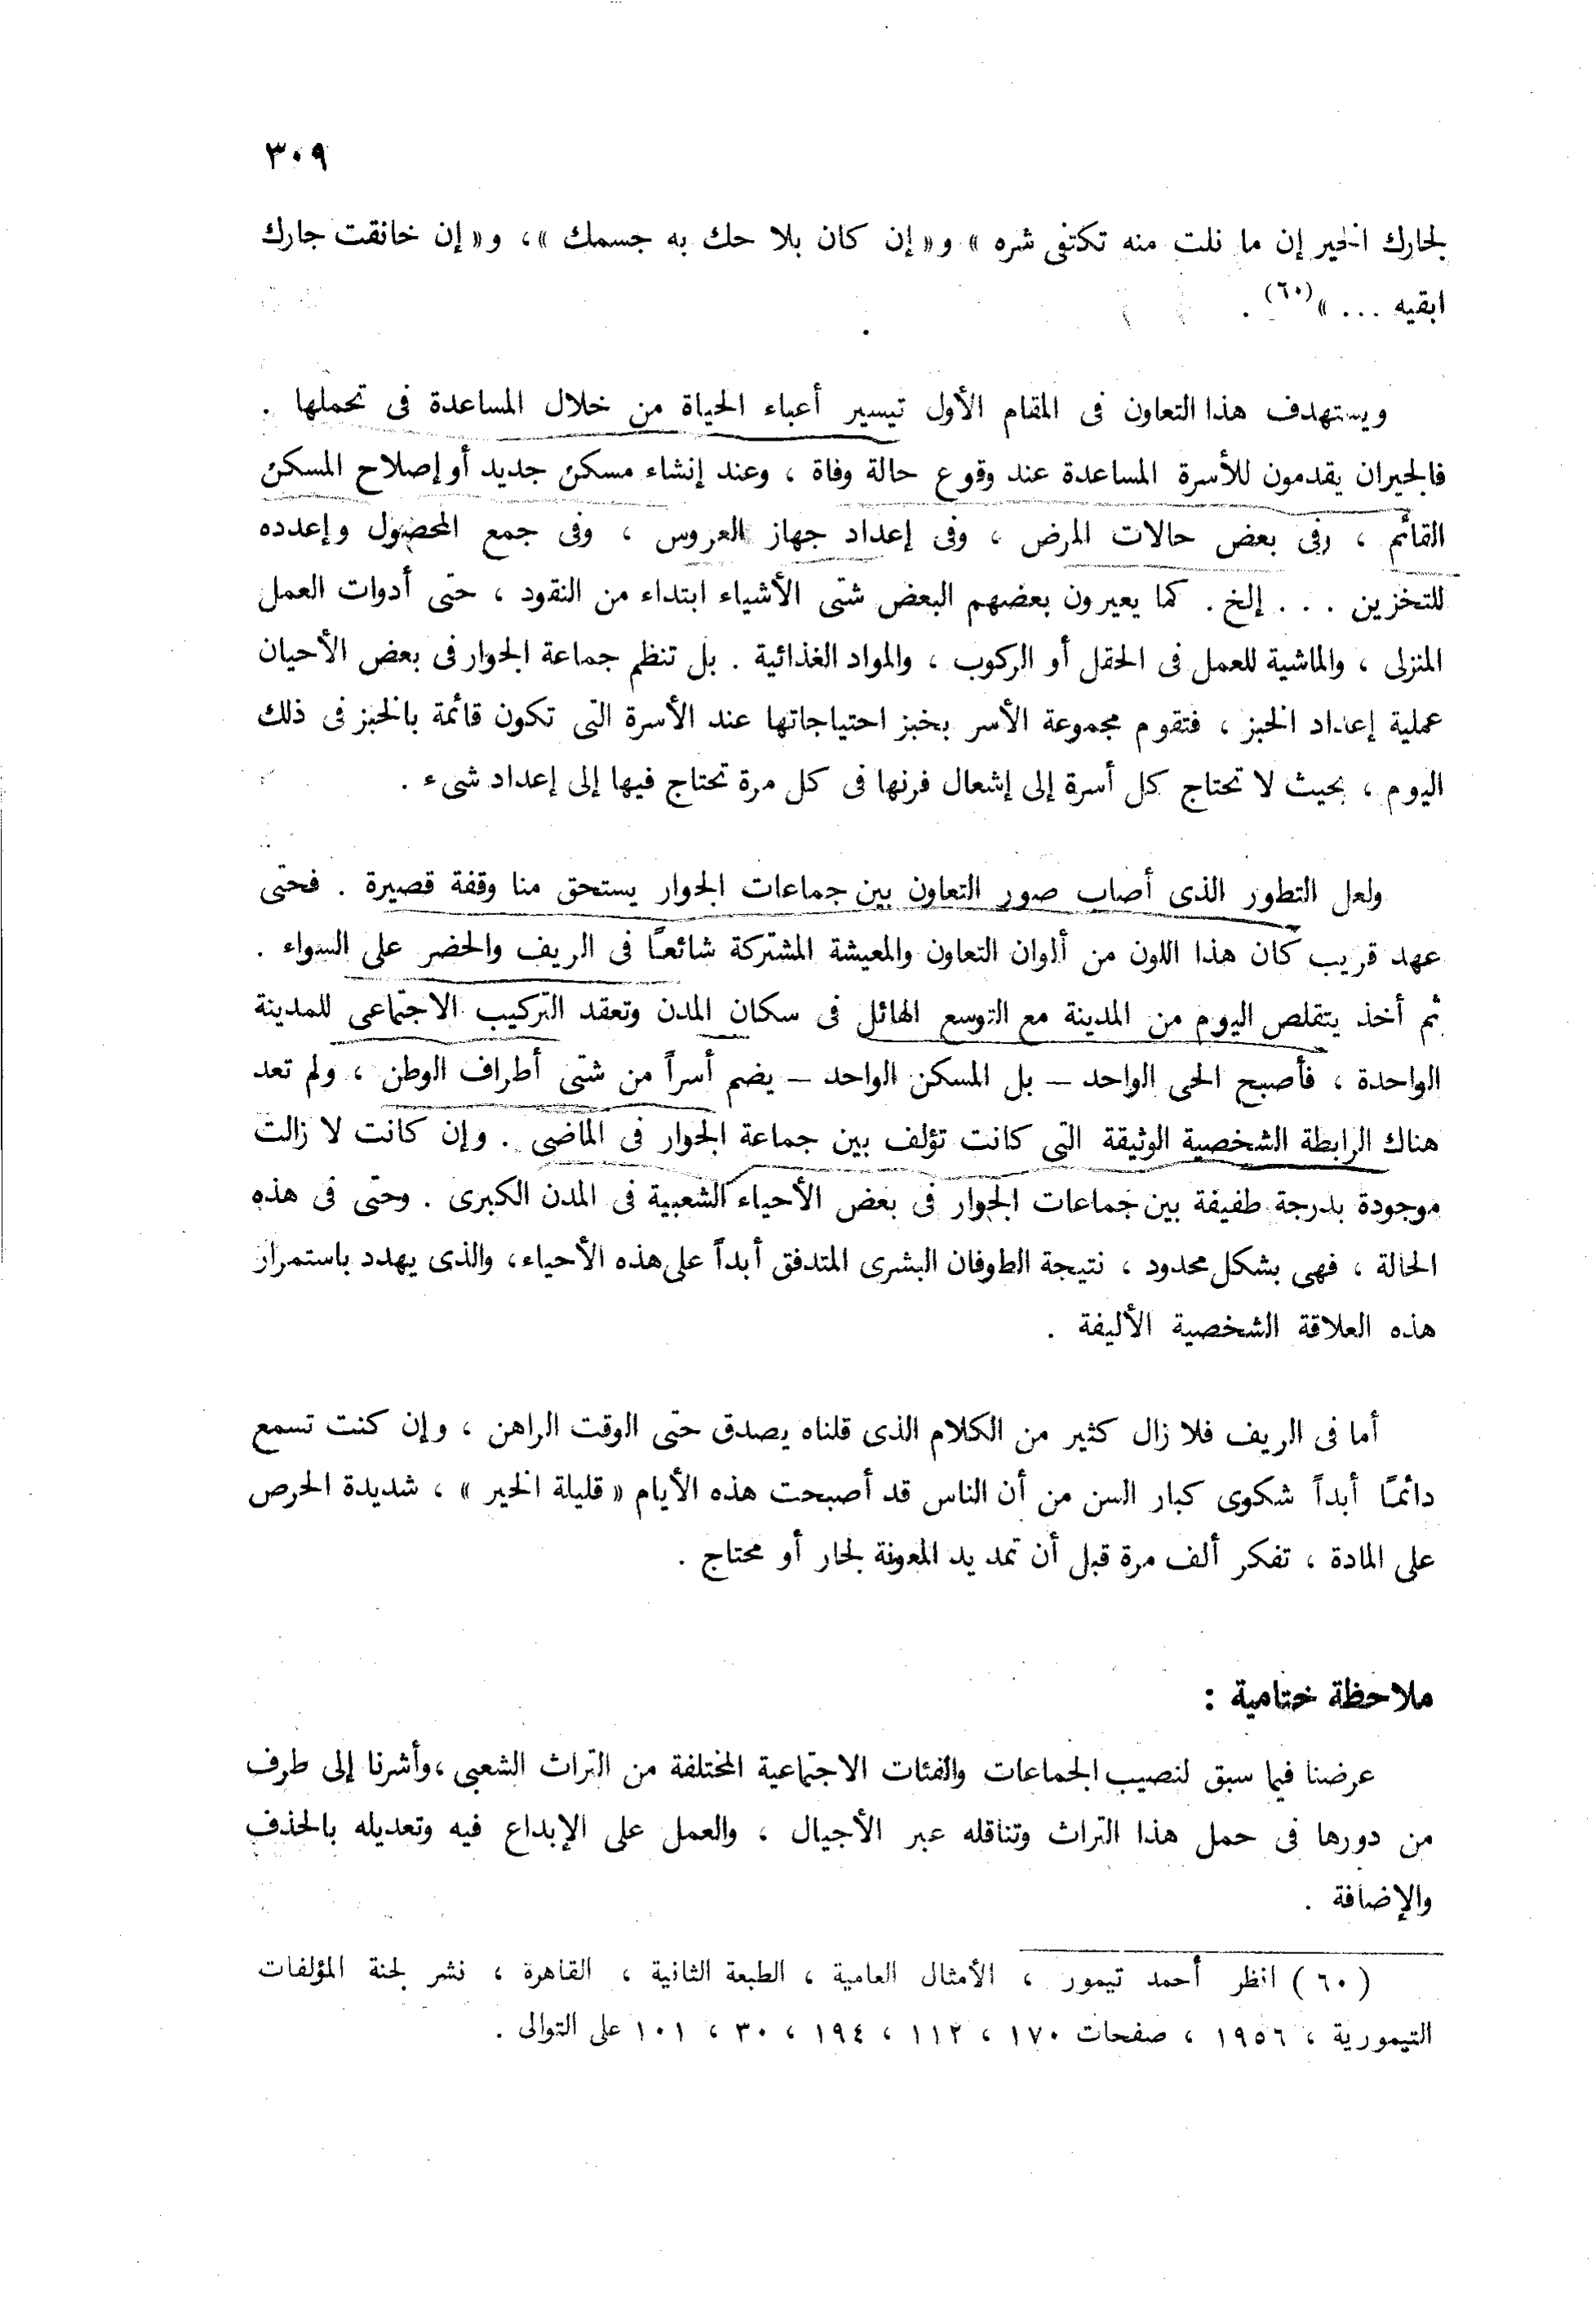 ٣٠٩
لجارك الخير إن ما نلت منه تكتفى شره » و « إن كان بلا حك به جسمك »، و « إن خانقت جارك
ابقيه ... »(٦٠) .
ويستهدف هذا التعاون فى المقام الأول تيسير أعباء الحياة من خلال المساعدة فى تحملها .
فالجيران يقدمون للأسرة المساعدة عند وقوع حالة وفاة ، وعند إنشاء مسكن جديد أو إصلاح المسكن
القائم ، وفى بعض حالات المرض ، وفى إعداد جهاز العروس ، وفى جمع المحصول وإعدده
للتخزين . . . إلخ . كما يعيرون بعضهم البعض شتى الأشياء ابتداء من النقود ، حتى أدوات العمل
المنزلى ، والماشية للعمل فى الحقل أو الركوب ، والمواد الغذائية . بل تنظم جماعة الجوار فى بعض الأحيان
عملية إعداد الخبز ، فتقوم مجموعة الأسر بخبز احتياجاتها عند الأسرة التى تكون قائمة بالخبز فى ذلك
اليوم ، بحيث لا تحتاج كل أسرة إلى إشعال فرنها فى كل مرة تحتاج فيها إلى إعداد شىء .
ولعل التطور الذى أصاب صور التعاون بين جماعات الجوار يستحق منا وقفة قصيرة . فحتى
عهد قريب كان هذا اللون من ألوان التعاون والمعيشة المشتركة شائعاً فى الريف والحضر على السواء .
ثم أخذ يتقلص اليوم من المدينة مع التوسع الهائل فى سكان المدن وتعقد التركيب الاجتماعى للمدينة
الواحدة ، فأصبح الحى الواحد – بل المسكن الواحد – يضم أسراً من شتى أطراف الوطن ، ولم تعد
هناك الرابطة الشخصية الوثيقة التى كانت تؤلف بين جماعة الجوار فى الماضى . وإن كانت لا زالت
موجودة بدرجة طفيفة بين جماعات الجوار فى بعض الأحياء الشعبية فى المدن الكبرى . وحتى فى هذه
الحالة ، فهى بشكل محدود ، نتيجة الطوفان البشرى المتدفق أبداً على هذه الأحياء، والذى يهدد باستمرار
هذه العلاقة الشخصية الأليفة .
أما فى الريف فلا زال كثير من الكلام الذى قلناه يصدق حتى الوقت الراهن ، وإن كنت تسمع
دائماً أبداً شكوى كبار السن من أن الناس قد أصبحت هذه الأيام « قليلة الخير » ، شديدة الحرص
على المادة ، تفكر ألف مرة قبل أن تمد يد المعونة لجار أو محتاج .
ملاحظة ختامية :
عرضنا فيما سبق لنصيب الجماعات والفئات الاجتماعية المختلفة من التراث الشعبى ،وأشرنا إلى طرف
من دورها فى حمل هذا التراث وتناقله عبر الأجيال ، والعمل على الإبداع فيه وتعديله بالحذف
والإضافة .
(٦٠) انظر أحمد تيمور ، الأمثال العامية ، الطبعة الثانية ، القاهرة ، نشر لجنة المؤلفات
التيمورية ، ١٩٥٦ ، صفحات ١٧٠ ، ١١٢ ، ١٩٤ ، ٣٠ ، ١٠١ على التوالى .